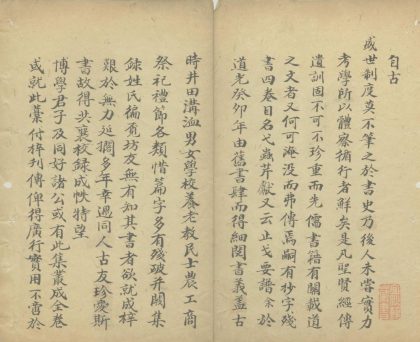 自古
盛世制度莫不筆之於書史乃後人未嘗實力
考學所以體察循行者鮮矣是凡聖賢經傳
遺訓固不可不珍重而先儒書籍有關載道
之文者又何可淹沒而弗傳焉嗣有抄字殘
書四卷目名弋獻芹獻又云止戈要譜余於
道光癸卯年由舊書肆而得細閱書義盖古
時井田溝洫男女學校養老教民士農工商
祭祀禮節各類惜篇字多有殘破并闕集
錄姓氏徧覓坊友無有知其書者欲就成梓
艱於無力延擱多年幸遇同人古友珍愛斯
書故得共襄校錄成帙特望
博學君子及同好諸公或有此集叢成全卷
或就此藁付梓刊傳俾得廣行實用不啻於